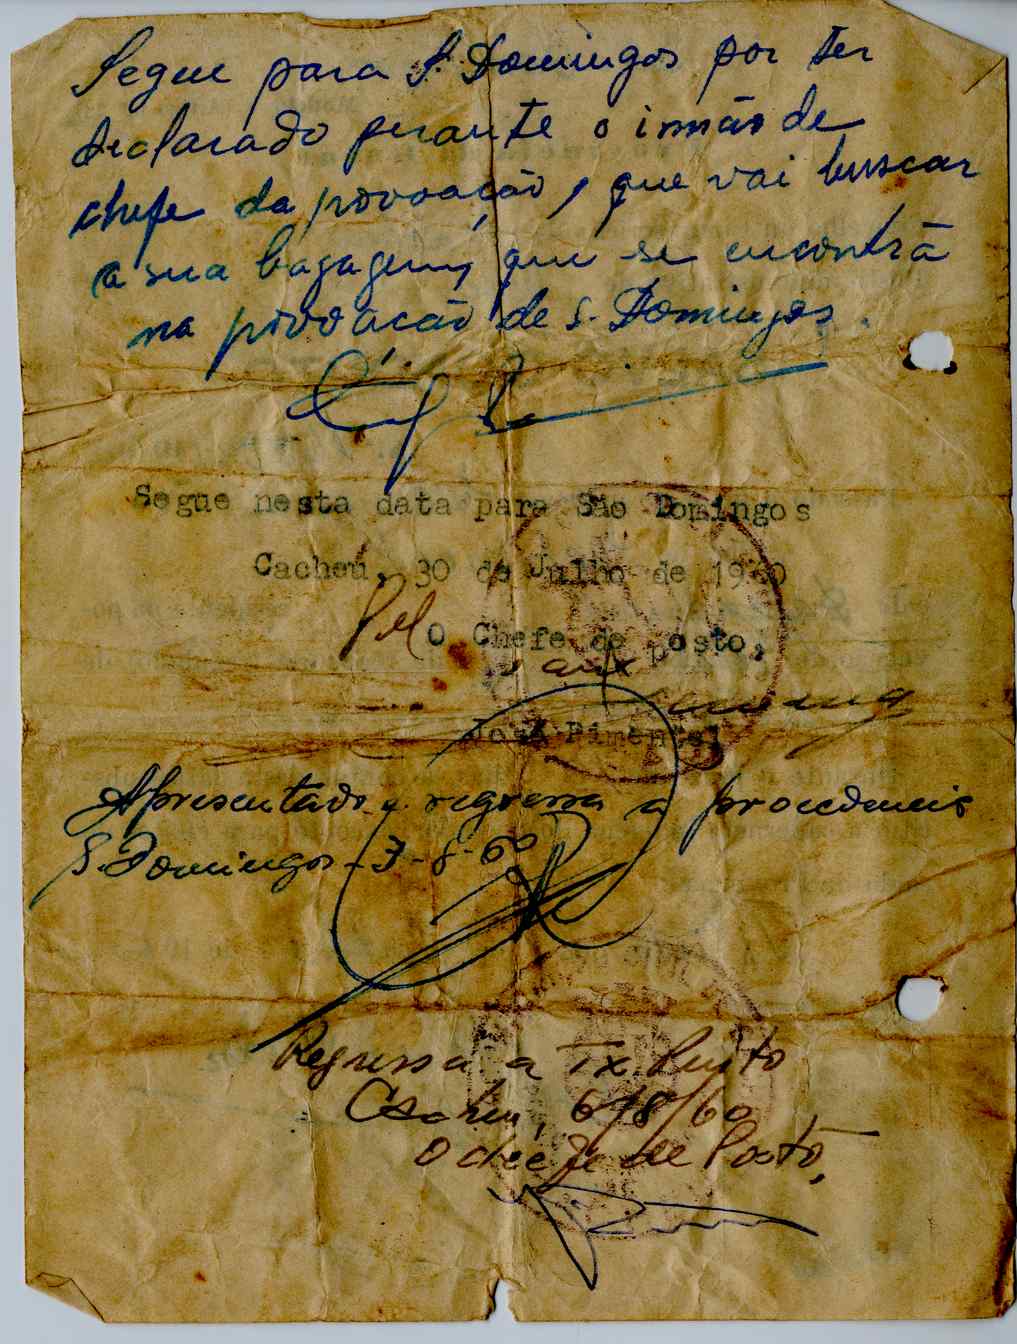 Segue para S. Domingos por ter
declarado perante o irmão de
chefe da povoação, que vai buscar
a sua bagagem, que se encontrā
na povoacão de S. Domingos.
Segue nesta data para São Domingos
Cacheu, 30 de Julho de 1960
Pel O Chefe de posto,
José Pimentel
Apresentado e regressa a procedencia
S. Domingos - 3-8-60
Regressa a Tx. Pinto
Cacheu, 6/8/60
O chefe de Posto,